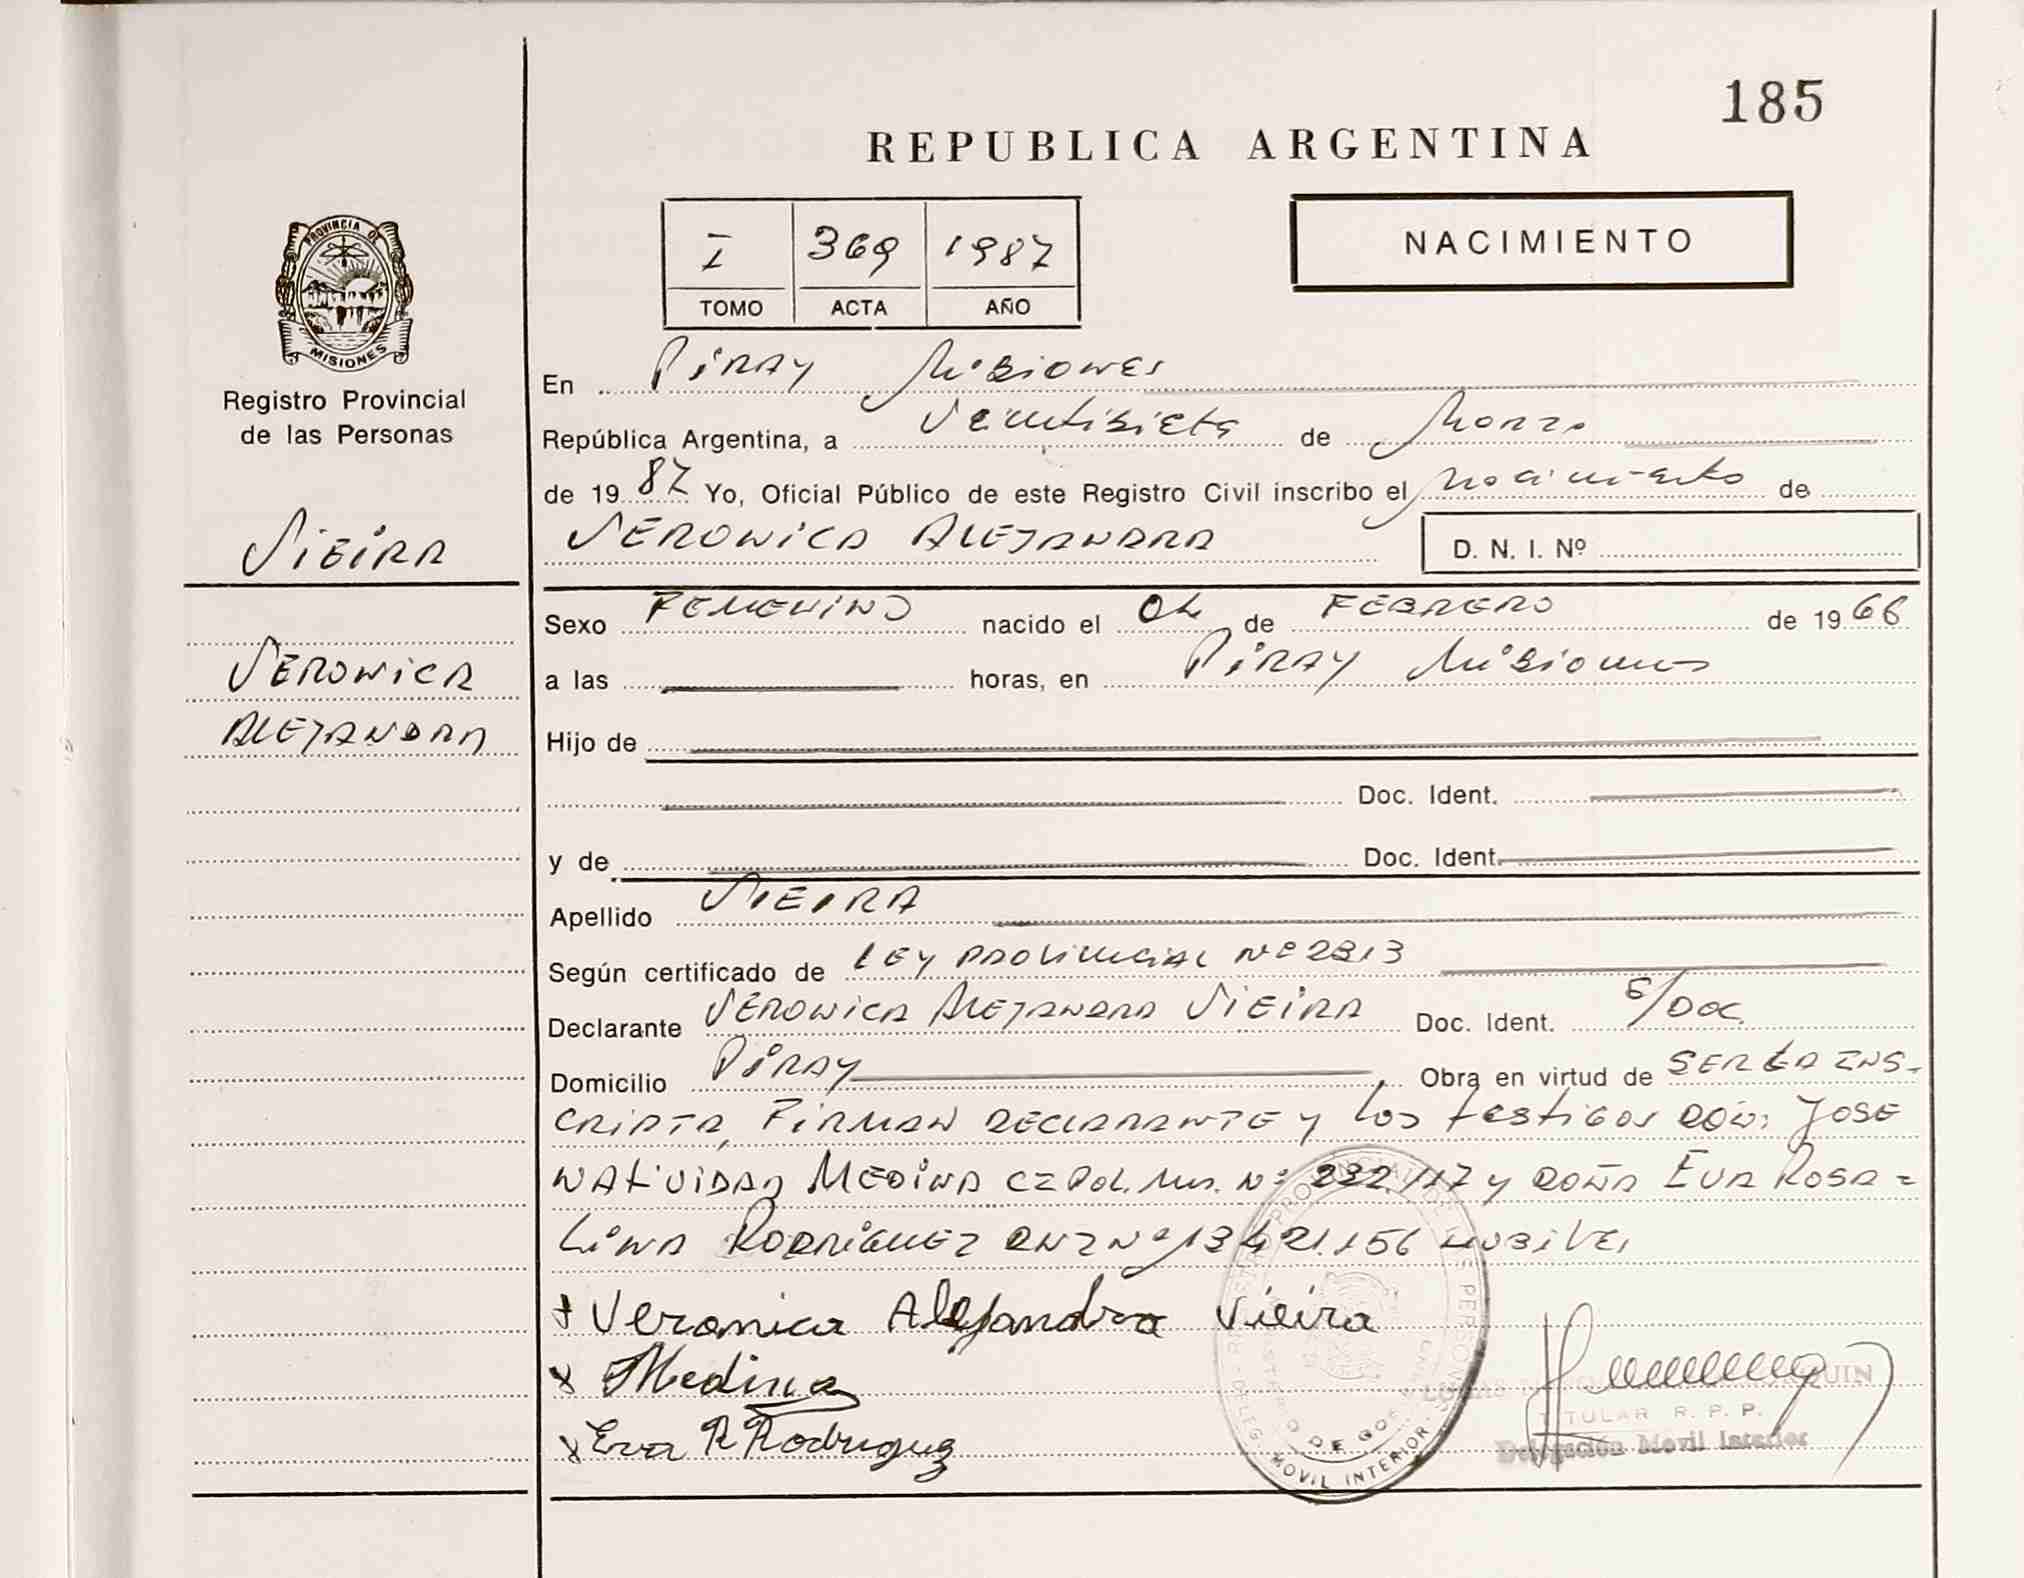 185
REPUBLICA ARGENTINA
I 369 1987
TOMO ACTA AÑO
NACIMIENTO
PROVINCIA DE
MISIONES
Registro Provincial
de las Personas
VIEIRA
VERONICA
ALEJANDRA
En PIRAY MISIONES
República Argentina, a Veintisiete de Marzo
de 1987 Yo, Oficial Público de este Registro Civil inscribo el nacimiento de
VERONICA ALEJANDRA D. N. I. Nº
Sexo FEMENINO nacido el 04 de FEBRERO de 1966
a las horas, en PIRAY Misiones
Hijo de
Doc. Ident.
y de Doc. Ident.
Apellido VIEIRA
Según certificado de LEY PROVINCIAL Nº 2313
Declarante VERONICA ALEJANDRA VIEIRA Doc. Ident. S/DOC.
Domicilio PIRAY Obra en virtud de SER LA INS-
CRIPTA, FIRMAN DECLARANTE y los testigos DON: JOSE
NATIVIDAD MEDINA CI Pol. Mis. Nº 232.117 y DOÑA EVA ROSA=
LINA RODRIGUEZ DNI Nº 13.421.156
Veronica Alejandra Vieira
Medina
Eva R Rodriguez
TITULAR R. P. P.
Delegación Movil Interior
MOVIL INTERIOR